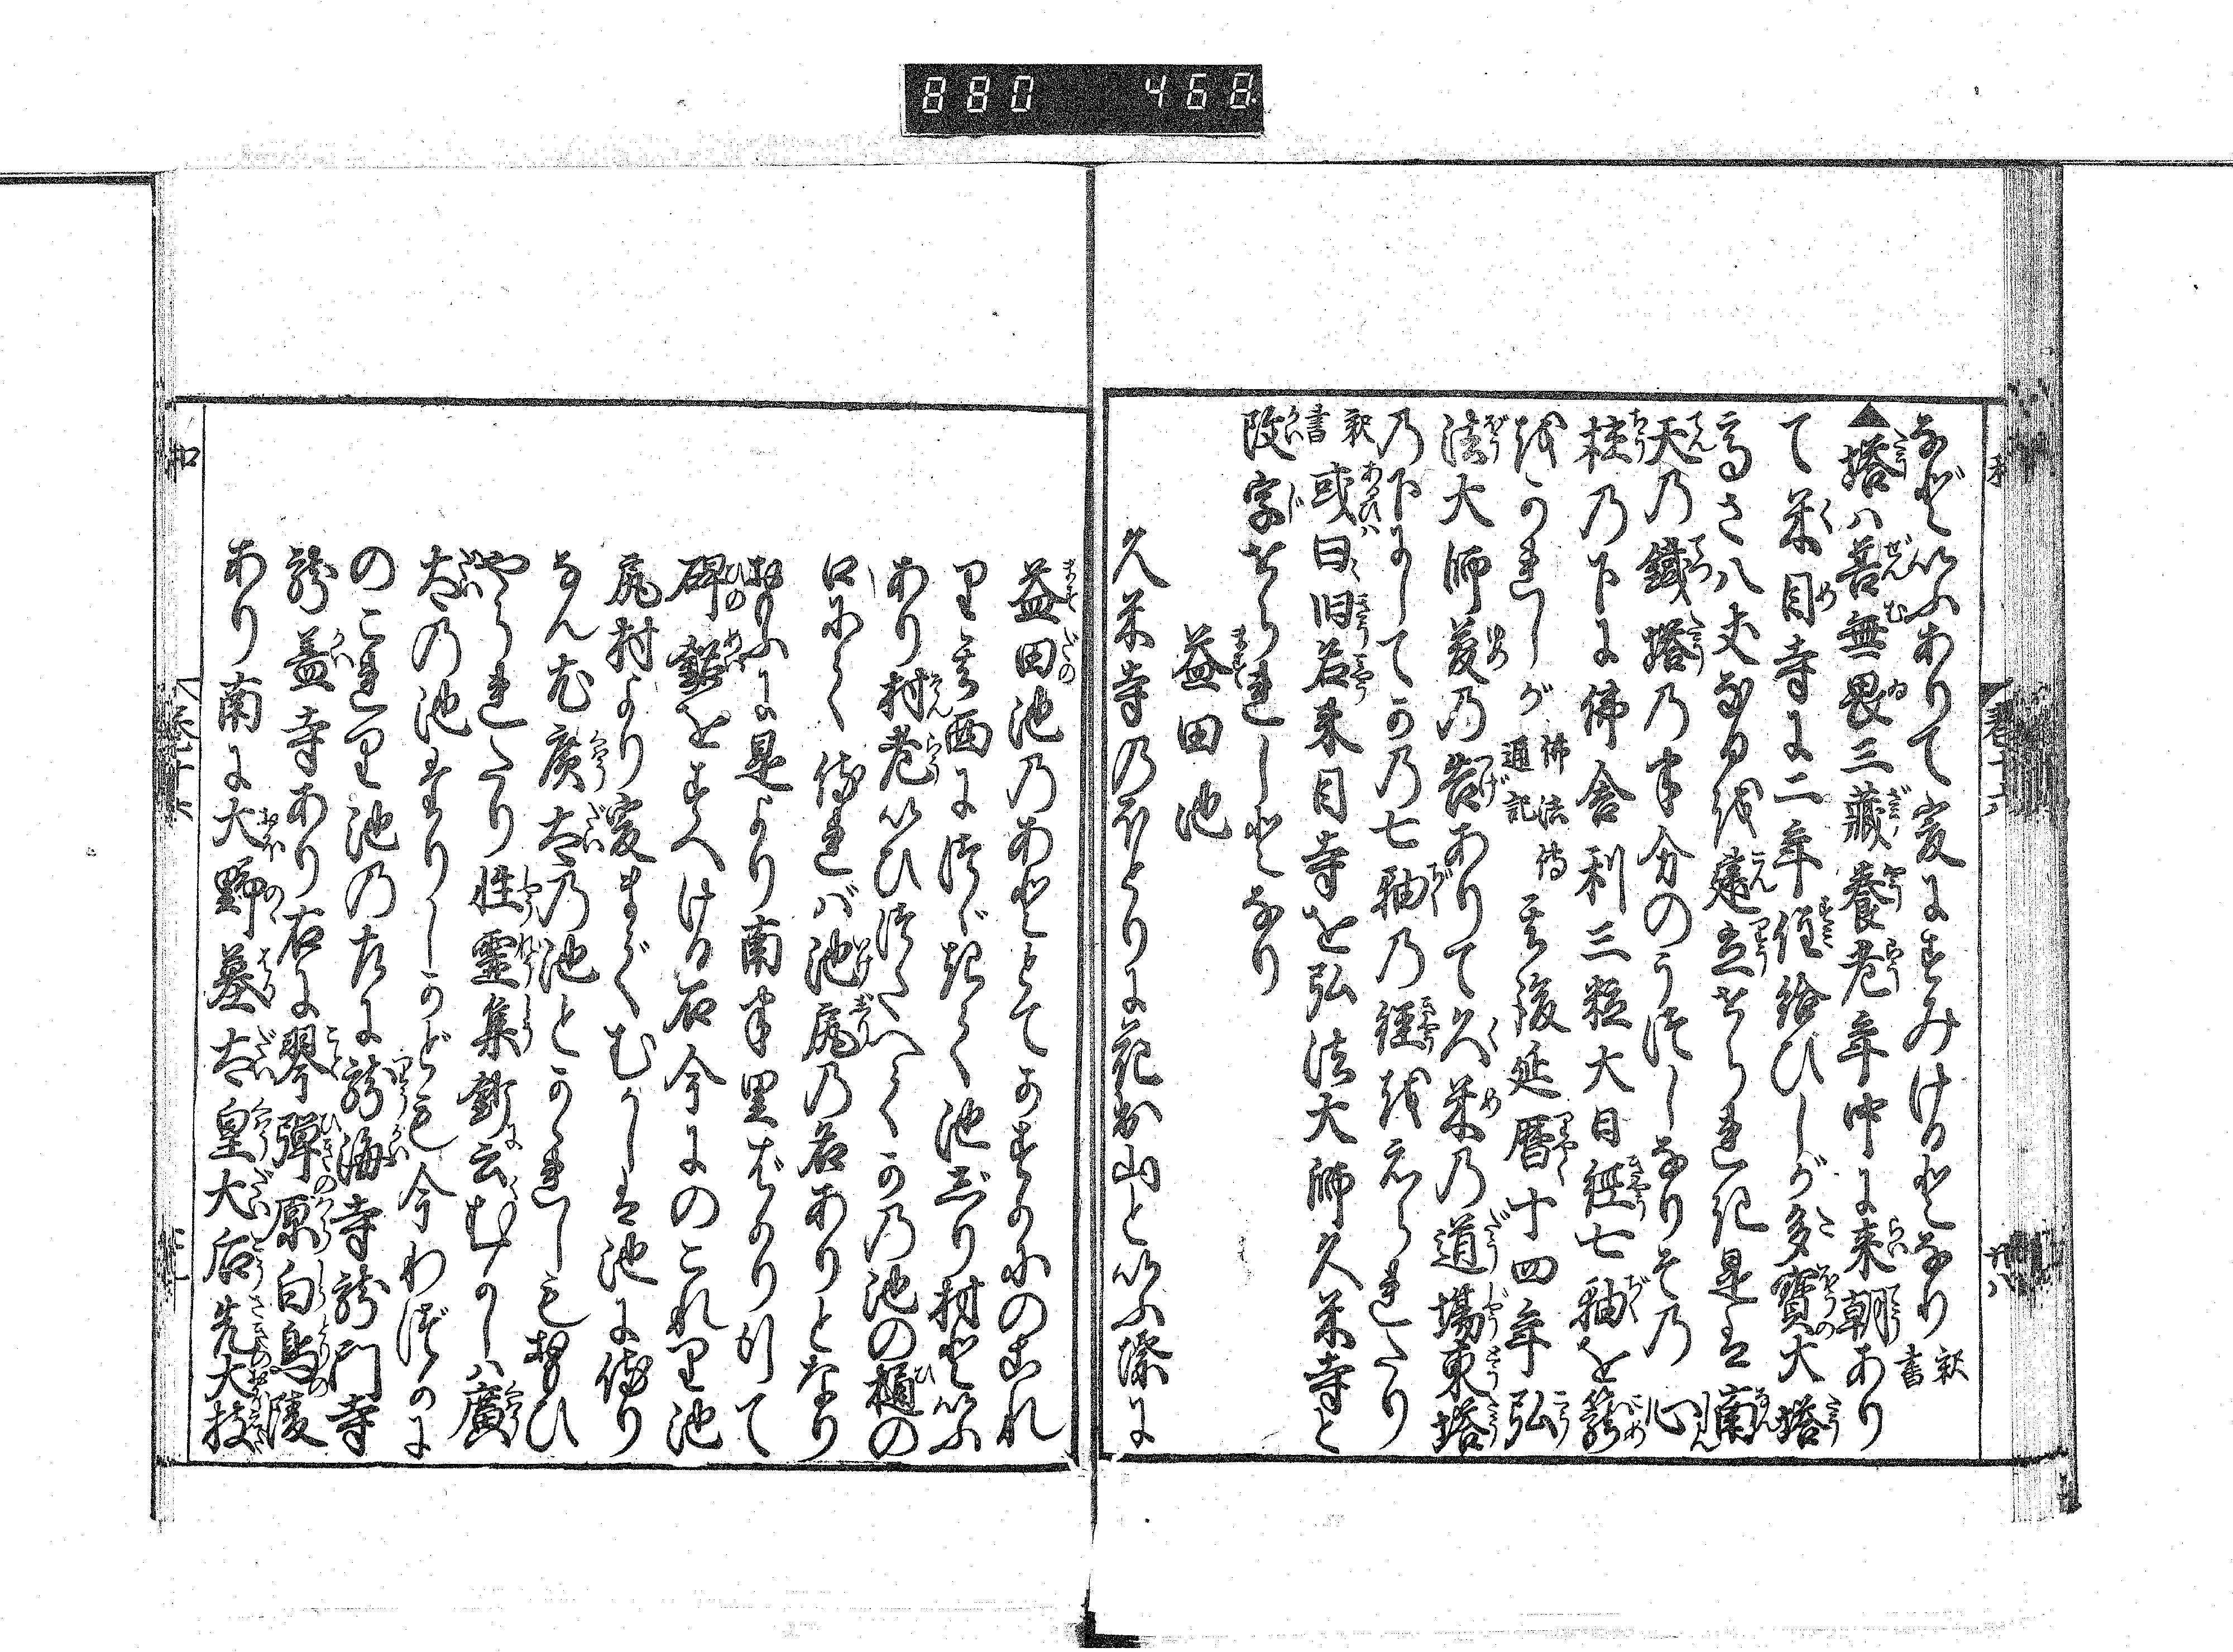 880 468
などいふありて爰にすみけるとなり 釈書
▲塔ハ善無畏三藏養老年中に来朝あり
て米目寺に二年住給ひしが多寶大塔
高さ八丈なるを建立せられき是は南
天乃鐵塔乃半分のうつしなりその心
柱乃下に佛舎利三粒大日経七軸を籠
をかれしが 佛法傳通記 其後延暦十四年弘
法大師夢乃告ありて久米乃道場東塔
乃下にしてか乃七軸乃経をえられたり
釈書 或曰旧名来目寺を弘法大師久米寺と
改字せられしとなり
益田池
久米寺乃ほとりに花出山といふ際に
益田池乃あとてかすかにのこれ
り其西につゞきて池じり村といふ
あり村老いひつたへてか乃池の樋の
口にて侍れバ池尻乃名ありとなり
おもふに是より南半里ばかり行て
碑銘をすへける石今にのこれり池
尻村より爰まてむかしは池に侍り
なんむ廣太乃池とかゝれしも思ひ
やられたり性霊集銘云むかしハ廣
太乃池なりしかども今わづかに
のこれり池乃左に龍海寺龍門寺
龍蓋寺あり右に琴弾原白鳥陵
あり南に大野墓太皇大后先大枝